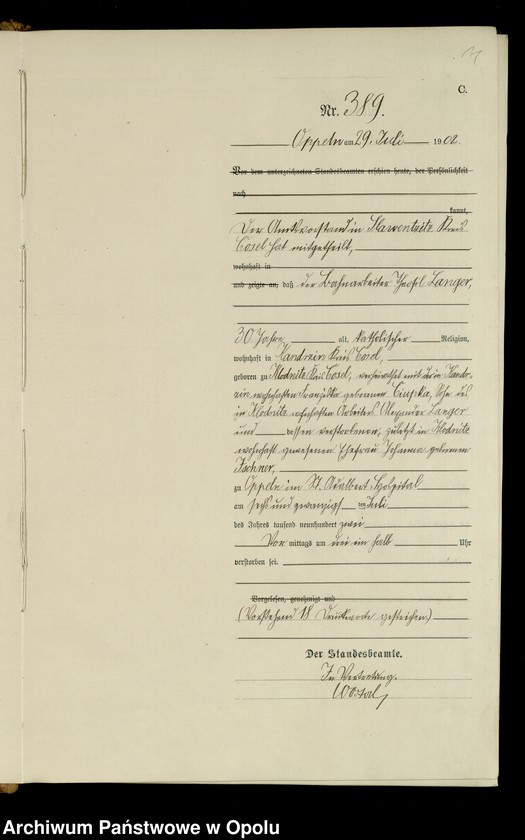 C.
Nr. 389.
Oppeln am 29. Juli 1902.
Vor dem unterzeichneten Standesbeamten erschien heute, der Persönlichkeit
nach
kannt,
Der Amtsvorstand in Slawentzitz Kreis
Cosel hat mitgetheilt,
wohnhaft in
und zeigte an, daß der Bahnarbeiter Theofil Langer,
30 Jahre alt, katholischer Religion,
wohnhaft in Kandrzin Kreis Cosel,
geboren zu Klodnitz Kreis Cosel, verheirathet mit der in Kandr-
zin wohnhaften Franziska geborenen Ciupka, Sohn des
in Klodnitz wohnhaften Arbeiters Alexander Langer
und dessen verstorbenen, zuletzt in Klodnitz
wohnhaft gewesenen Ehefrau Johanna geborenen
Ischner,
zu Oppeln im St. Adalbert Hospital
am sechs und zwanzigsten Juli
des Jahres tausend neunhundert zwei
Vor mittags um drei ein halb Uhr
verstorben sei.
Vorgelesen, genehmigt und
(Vorstehend 18 Druckworte gestrichen)
Der Standesbeamte.
In Vertretung.
Wostal
Archiwum Państwowe w Opolu